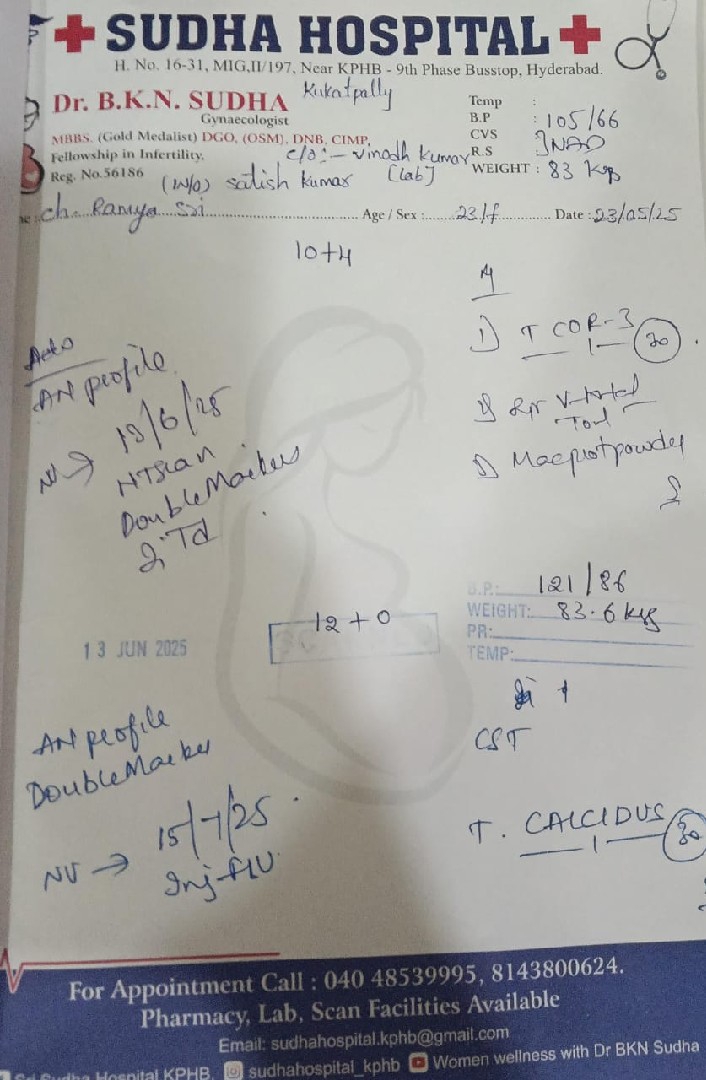 SUDHA HOSPITAL
H. No. 16-31, MIG,II/197, Near KPHB - 9th Phase Busstop, Hyderabad.
Kukatpally
Dr. B.K.N. SUDHA
Gynaecologist
MBBS. (Gold Medalist) DGO, (OSM), DNB, CIMP,
Fellowship in Infertility.
Reg. No.56186
c/o:- Vinodh kumar
[Lab]
(W/o) Satish kumar
Temp :
B.P : 105/66
CVS
R.S NAD
WEIGHT : 83 kgs
ch. Ramya Sri Age / Sex : 23/f Date : 23/05/25
10+4
1) T COR-3
1 30
Adv
AN profile
NV → 13/6/25
NT Scan
Double Markers
Td
3) Macprotpowder
13 JUN 2025
12 + 0
B.P.: 121/86
WEIGHT: 83.6 kg
PR:
TEMP:
CST
AN profile
Double Marker
T. CALCIDUS
1 30
NV → 15/7/25
Inj-FLU
For Appointment Call : 040 48539995, 8143800624.
Pharmacy, Lab, Scan Facilities Available
Email: sudhahospital.kphb@gmail.com
Sri Sudha Hospital KPHB, sudhahospital_kphb Women wellness with Dr BKN Sudha